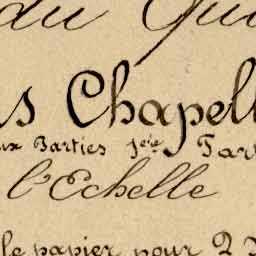 du Qu
s Chapell
ux Parties 1ère Par
l'Echelle
le papier pour 2